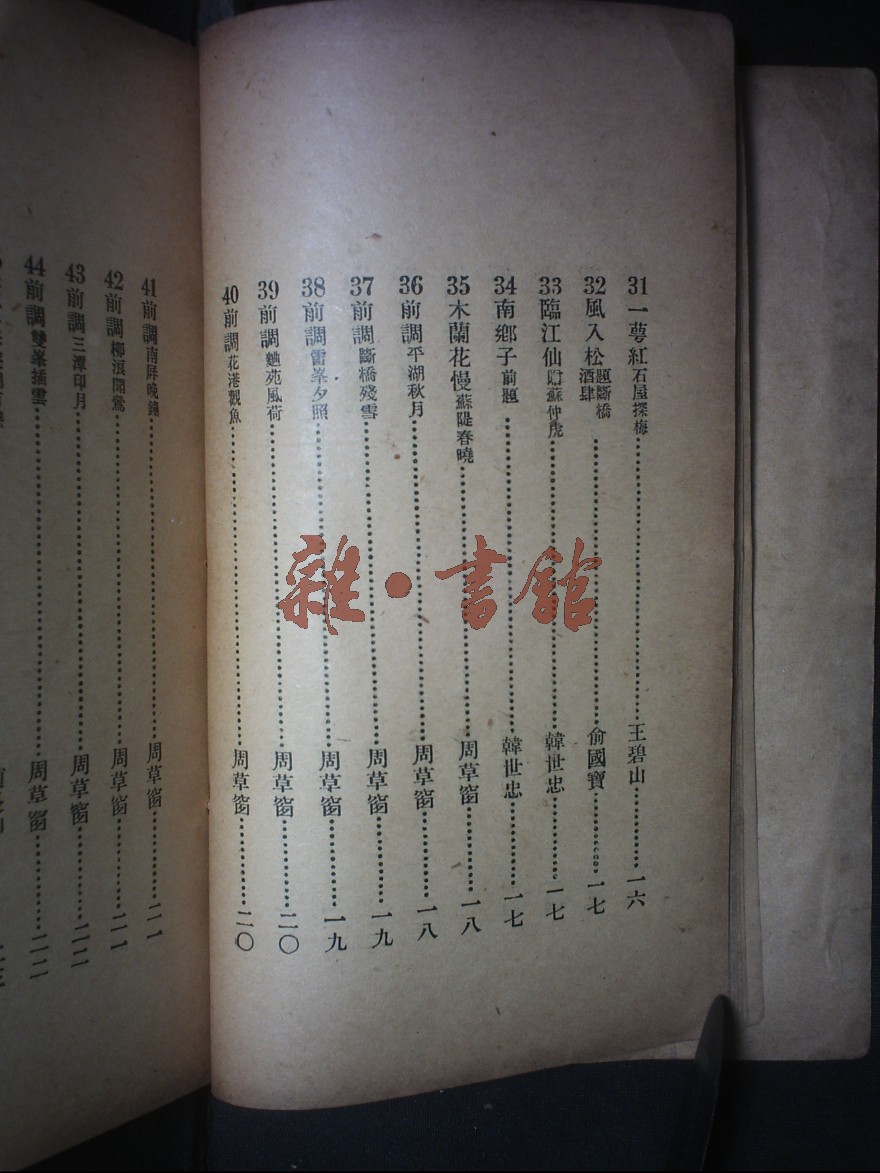 31一萼紅石屋探梅……王碧山……一六
32風入松題斷橋酒肆……俞國寶……一七
33臨江仙贈蘇仲虎……韓世忠……一七
34南鄉子前題……韓世忠……一七
35木蘭花慢蘇隄春曉……周草窗……一八
36前調平湖秋月……周草窗……一八
37前調斷橋殘雪……周草窗……一九
38前調雷峯夕照……周草窗……一九
39前調麯苑風荷……周草窗……二〇
40前調花港觀魚……周草窗……二〇
41前調南屏晚鐘……周草窗……二一
42前調柳浪聞鶯……周草窗……二一
43前調三潭印月……周草窗……二二
44前調雙峯插雲……周草窗……二二
雜·書館